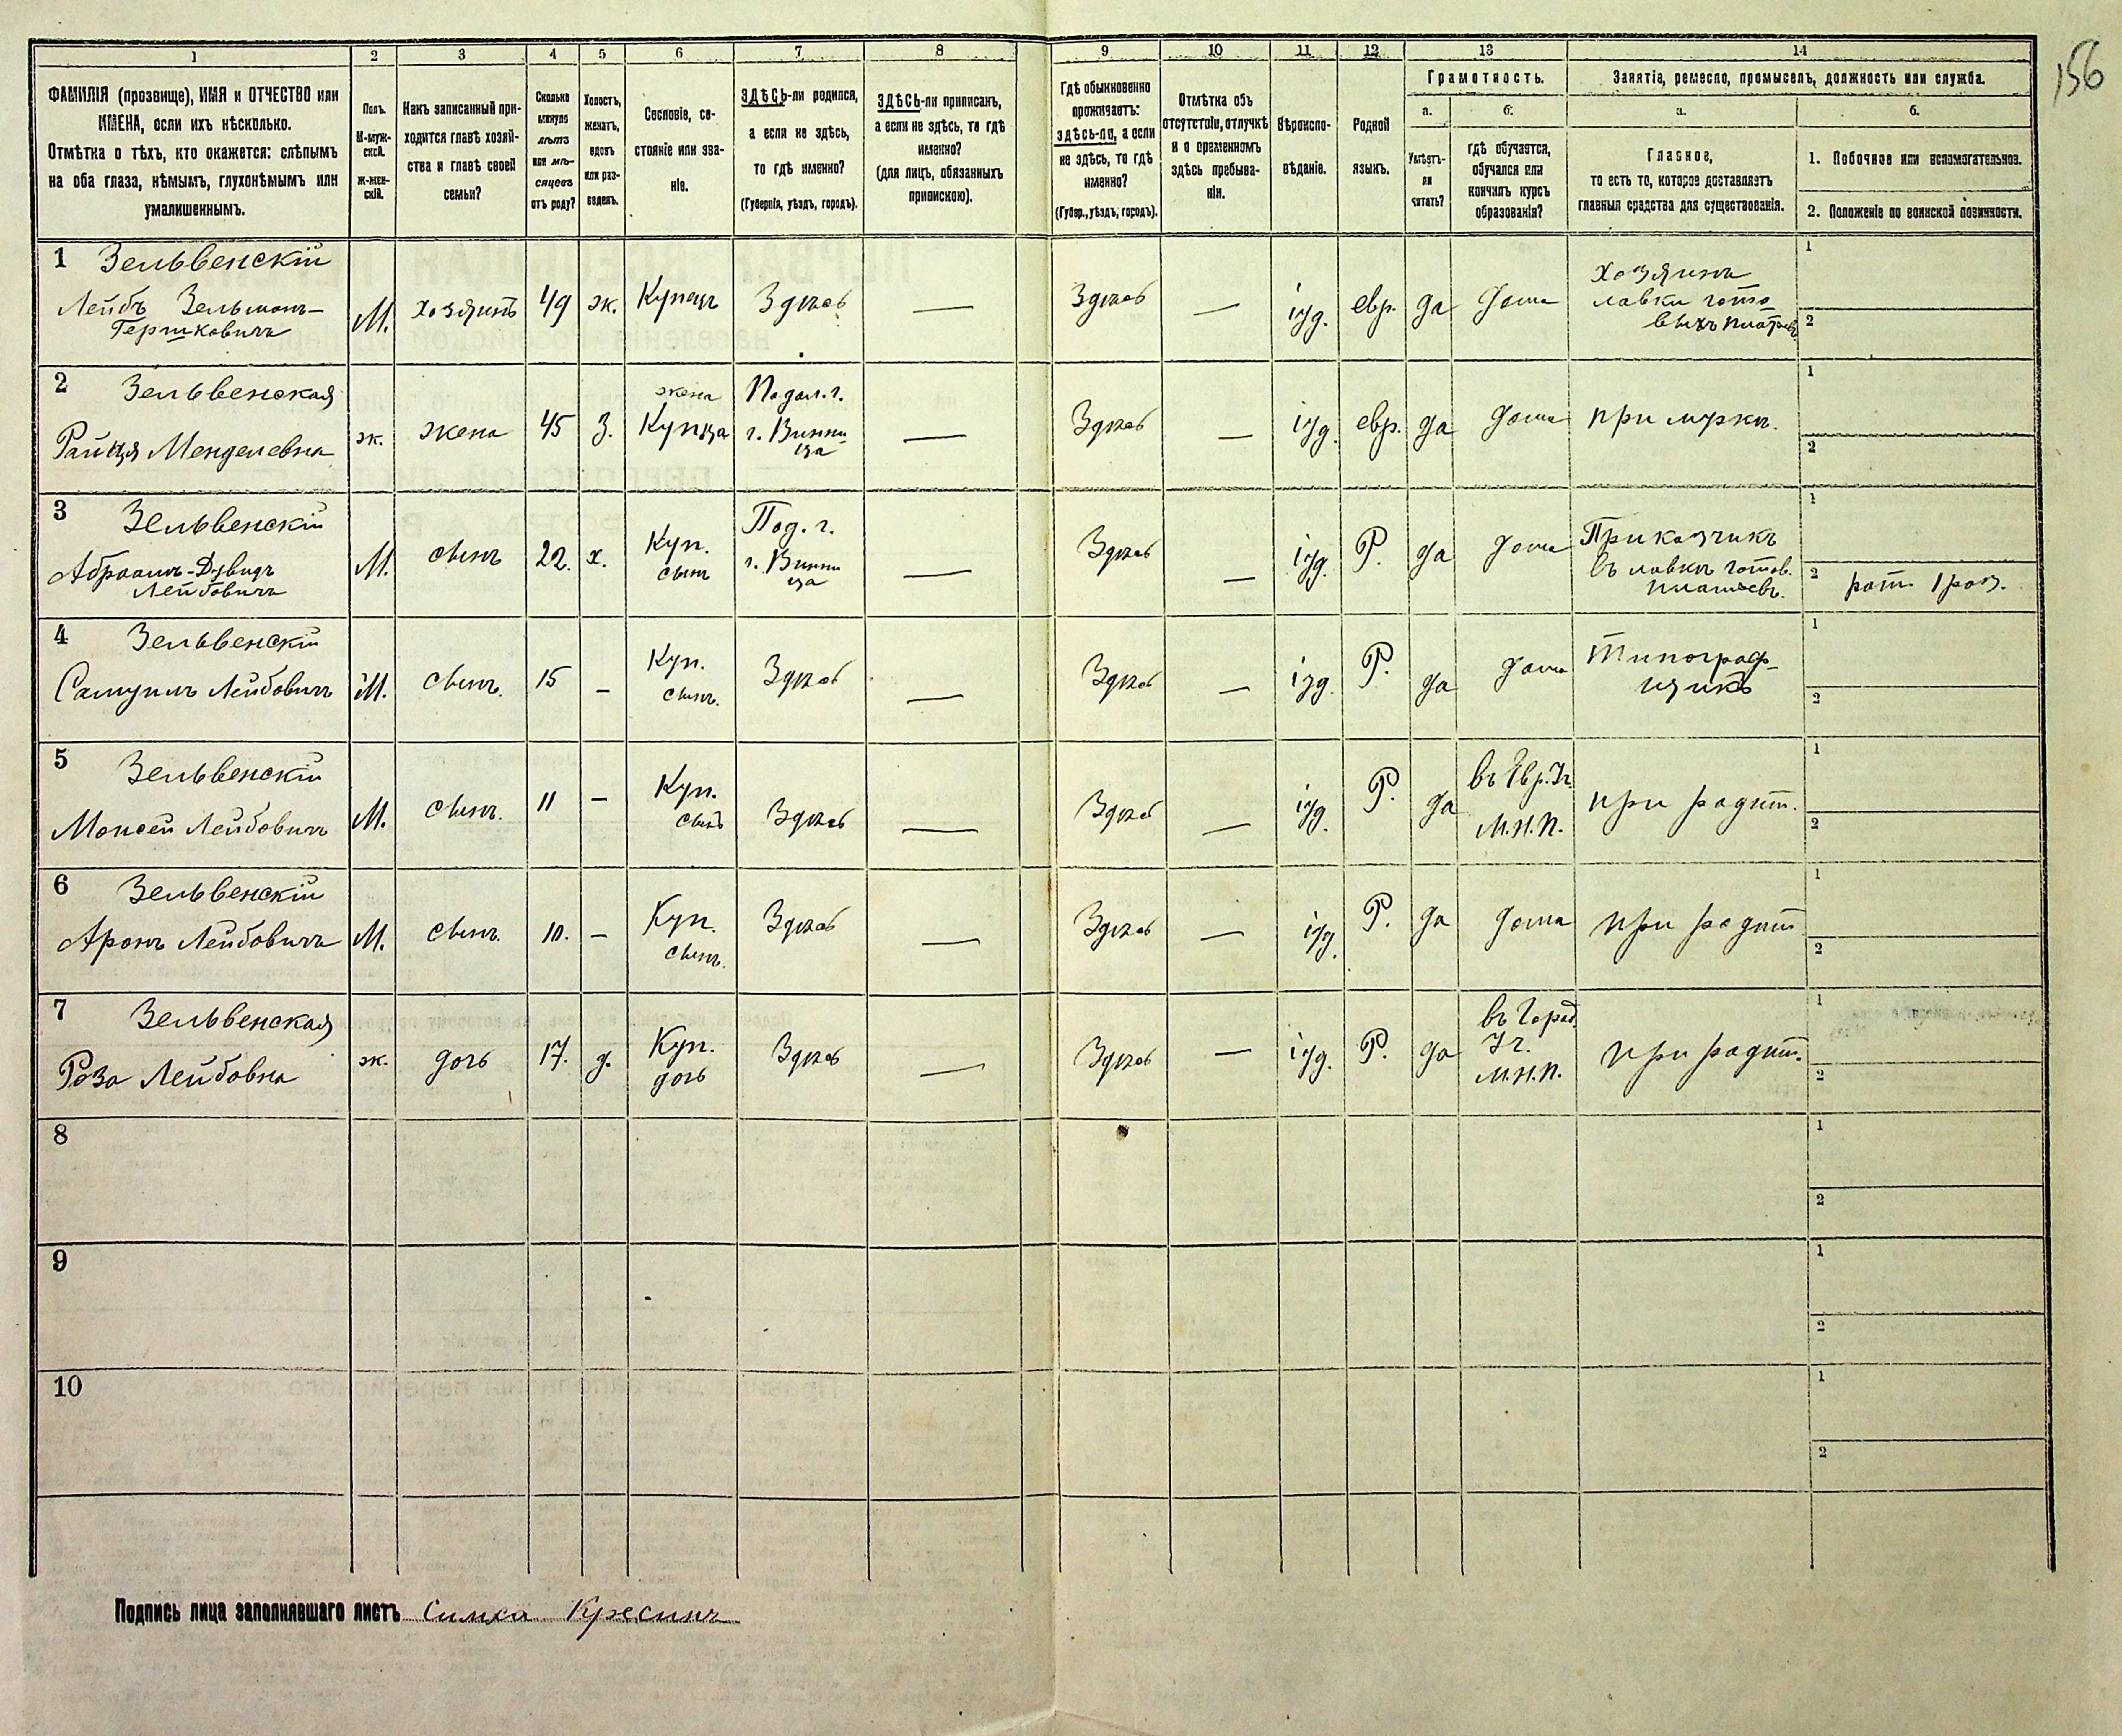 156
1 2 3 4 5 6 7 8 9 10 11 12 13 14
ФАМИЛІЯ (прозвище), ИМЯ и ОТЧЕСТВО или
ИМЕНА, если ихъ нѣсколько.
Отмѣтка о тѣхъ, кто окажется: слѣпымъ
на оба глаза, нѣмымъ, глухонѣмымъ или
умалишеннымъ.
Полъ.
М-муж-
ской.
Ж-жен-
скій.
Какъ записанный при-
ходится главѣ хозяй-
ства и главѣ своей
семьи?
Сколько
минуло
лѣтъ
или мѣ-
сяцевъ
отъ роду?
Холостъ,
женатъ,
вдовъ
или раз-
веденъ.
Сословіе, со-
стояніе или зва-
ніе.
ЗДѢСЬ-ли родился,
а если не здѣсь,
то гдѣ именно?
(Губернія, уѣздъ, городъ).
ЗДѢСЬ-ли приписанъ,
а если не здѣсь, то гдѣ
именно?
(для лицъ, обязанныхъ
припискою).
Гдѣ обыкновенно
проживаетъ:
здѣсь-ли, а если
не здѣсь, то гдѣ
именно?
(Губер., уѣздъ, городъ).
Отмѣтка объ
отсутствіи, отлучкѣ
и о временномъ
здѣсь пребыва-
ніи.
Вѣроиспо-
вѣданіе.
Родной
языкъ.
Грамотность.
а.
Умѣетъ-
ли
читать?
б.
гдѣ обучается,
обучался или
кончилъ курсъ
образованія?
Занятіе, ремесло, промыселъ, должность или служба.
а.
Главное,
то есть то, которое доставляетъ
главныя средства для существованія.
б.
1. Побочное или вспомогательное.
2. Положеніе по воинской повинности.
1 Зельвенскій
Лейбъ Зельманъ-
Гершковичъ
М.
хозяинъ
49
ж.
Купецъ
Здѣсь
—
Здѣсь
—
іуд.
евр.
да
дома
Хозяинъ
лавки гото
выхъ платьевъ
1
2
2 Зельвенская
Райця Менделевна
ж.
жена
45
з.
жена
Купца
Подол. г.
г. Винни
ца
—
Здѣсь
—
іуд.
евр.
да
дома
при мужѣ.
1
2
3 Зельвенскій
Абраамъ-Дувидъ
Лейбовичъ
М.
сынъ
22.
х.
Куп.
сынъ
Под. г.
г. Винни
ца
—
Здѣсь
—
іуд.
Р.
да
дома
Приказчикъ
въ лавкѣ готов.
платьевъ.
1
2 рат. 1 раз.
4 Зельвенскій
Самуилъ Лейбовичъ
М.
сынъ.
15
—
Куп.
сынъ.
Здѣсь
—
Здѣсь
—
іуд.
Р.
да
дома
Типограф-
щикъ
1
2
5 Зельвенскій
Моисей Лейбовичъ
М.
сынъ.
11
—
Куп.
сынъ
Здѣсь
—
Здѣсь
—
іуд.
Р.
да
въ Евр. Уч.
М.Н.П.
при родит.
1
2
6 Зельвенскій
Аронъ Лейбовичъ
М.
сынъ.
10.
—
Куп.
сынъ.
Здѣсь
—
Здѣсь
—
іуд.
Р.
да
дома
при родит
1
2
7 Зельвенская
Роза Лейбовна
ж.
дочь
17.
д.
Куп.
дочь
Здѣсь
—
Здѣсь
—
іуд.
Р.
да
въ Город.
Уч.
М.Н.П.
при родит.
1
2
8
1
2
9
1
2
10
1
2
Подпись лица заполнявшаго листъ Симха Кресинъ